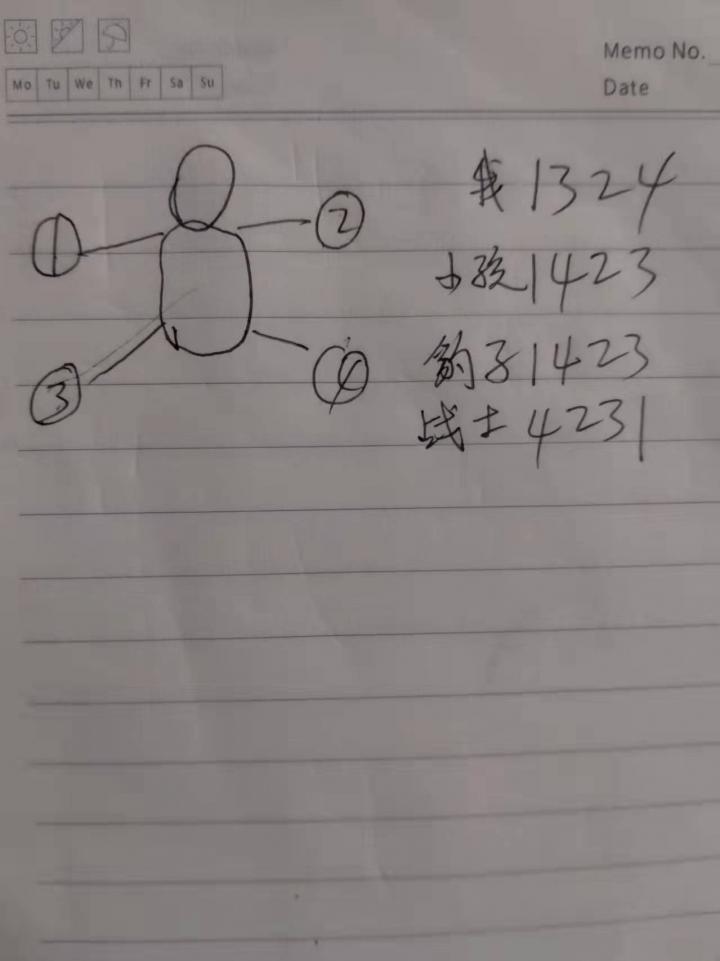 Memo No.
Mo Tu We Th Fr Sa Su
Date
我 1324
① ②
小孩 1423
豹子 1423
③ ④
战士 4231